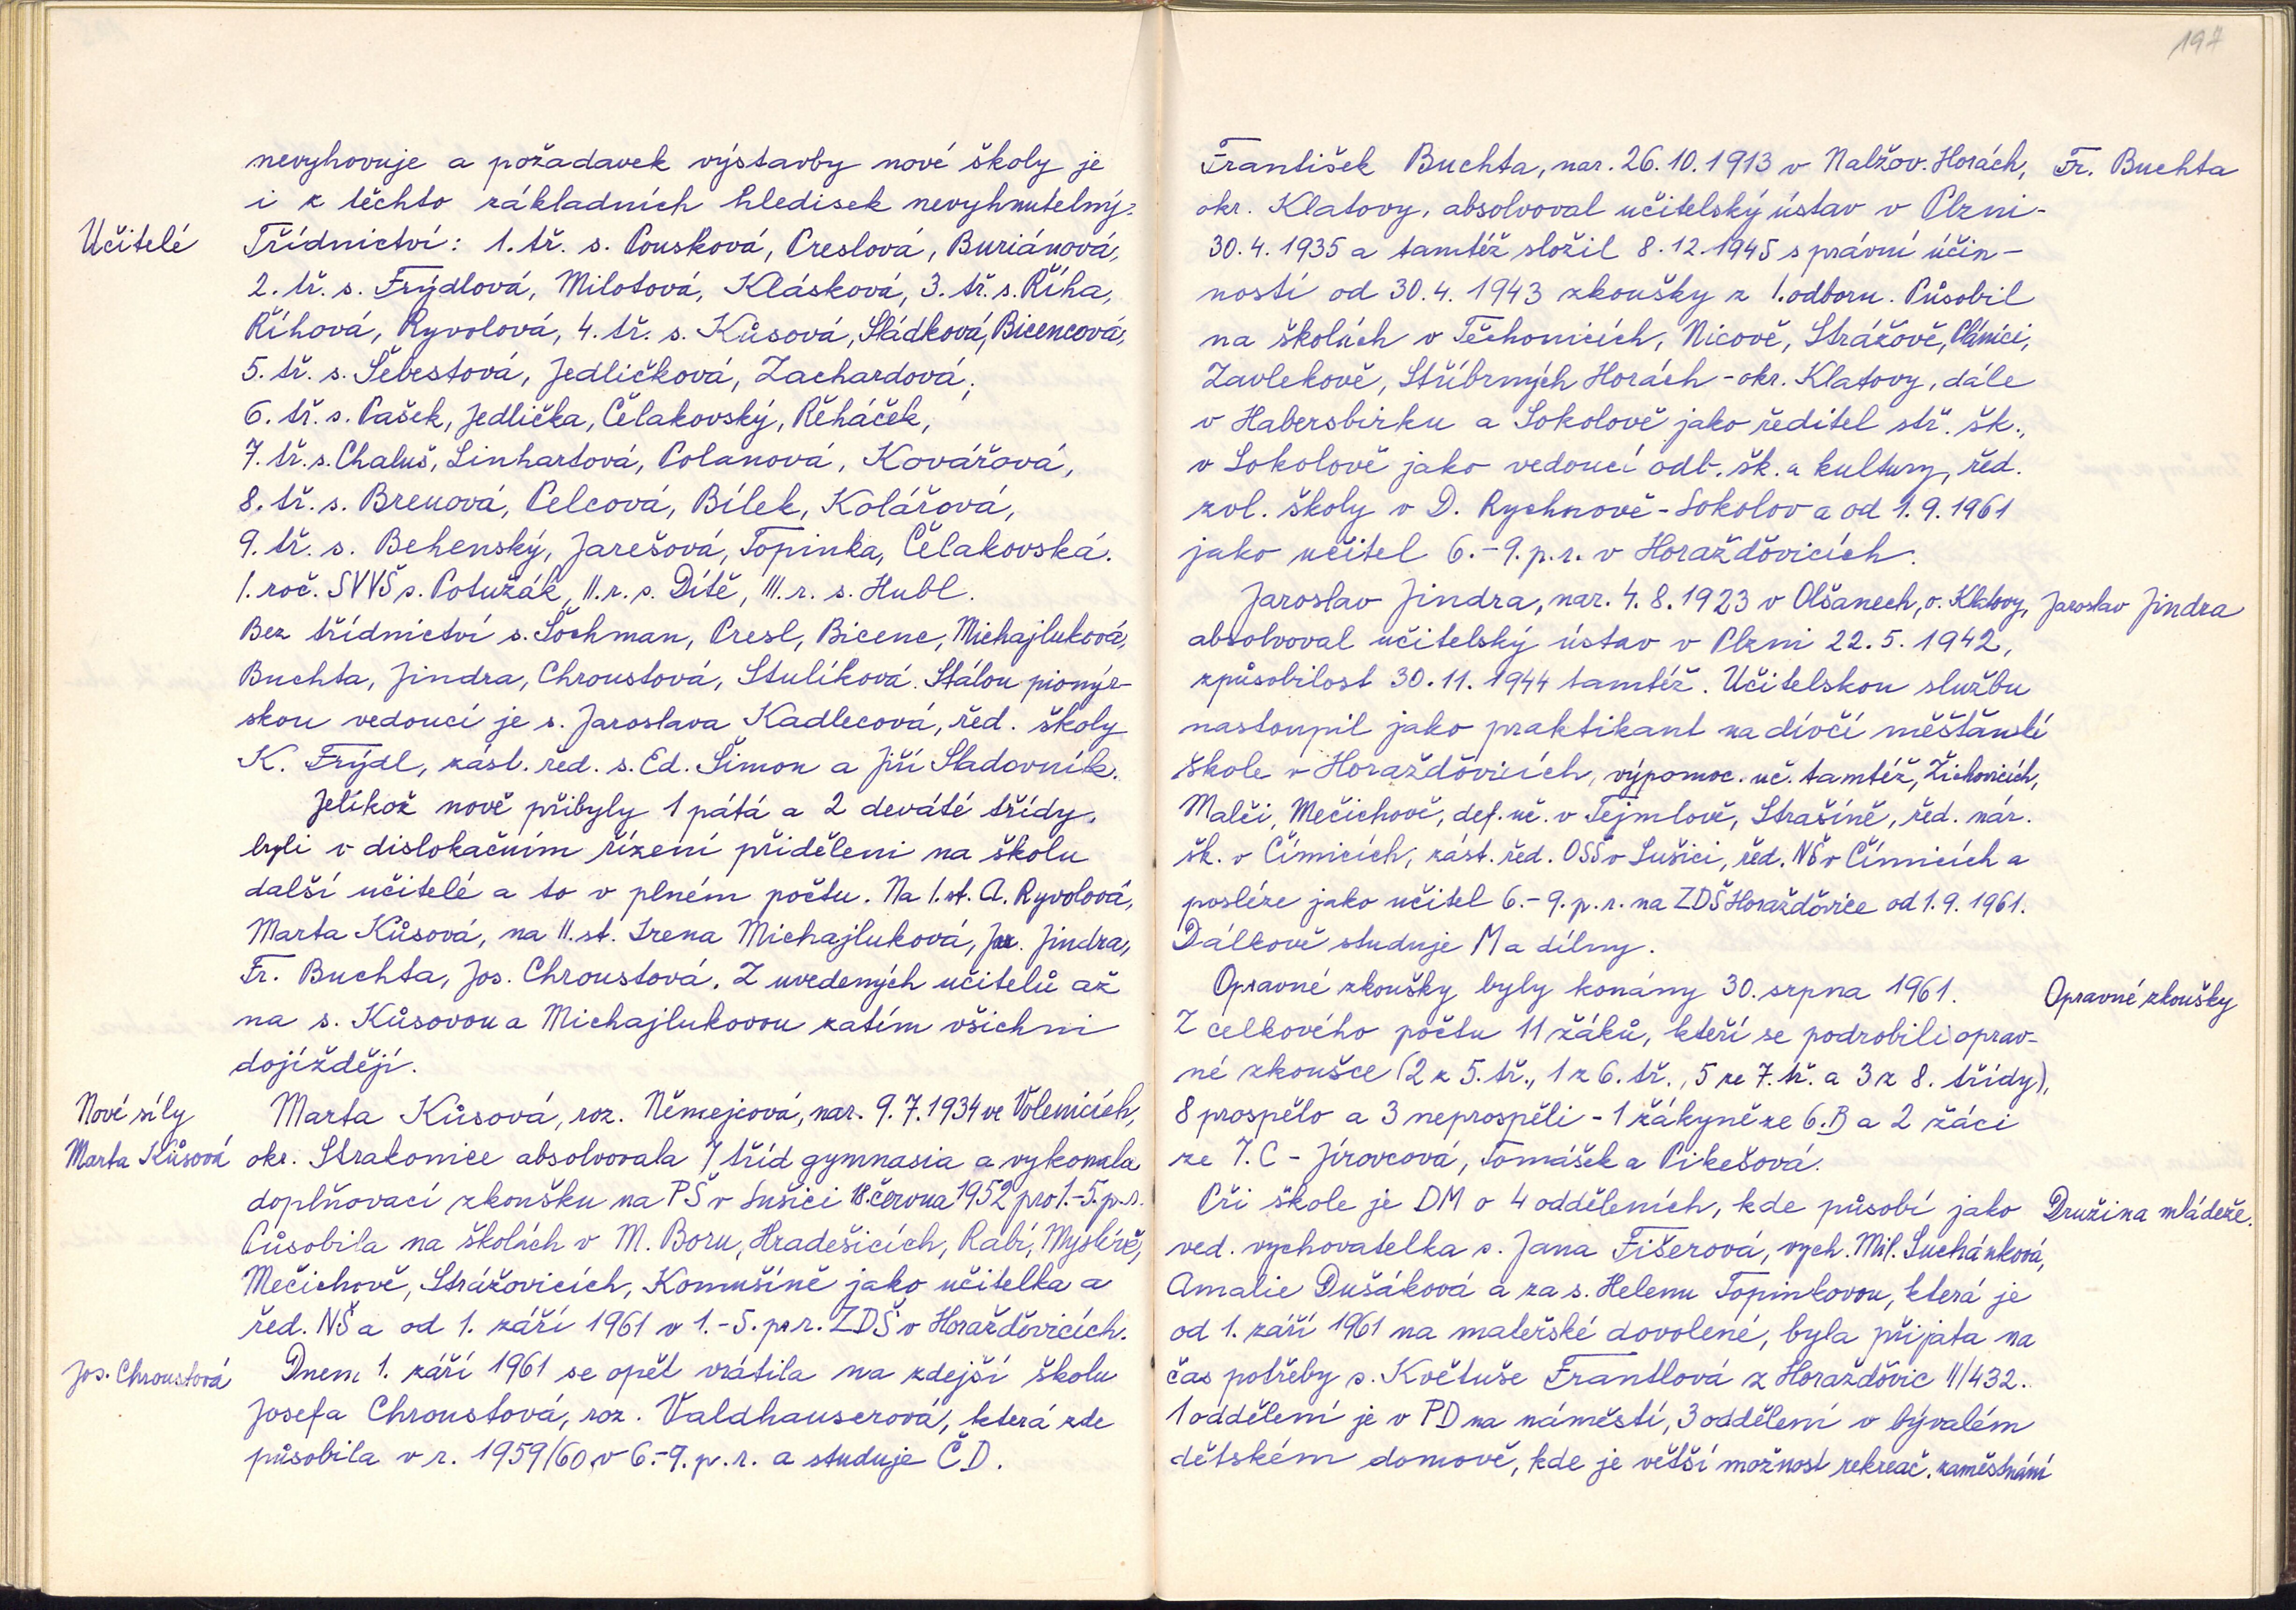 nevyhovuje a požadavek výstavby nové školy je
i z těchto základních hledisek nevyhnutelný.
Učitelé
Třídnictví: 1. tř. s. Pousková, Preslová, Buriánová,
2. tř. s. Frýdlová, Milotová, Klásková, 3. tř. s. Říha,
Říhová, Ryvolová, 4. tř. s. Kůsová, Sládková, Bicencová,
5. tř. s. Šebestová, Jedličková, Zachardová,
6. tř. s. Pašek, Jedlička, Čelakovský, Řeháček,
7. tř. s. Chaluš, Linhartová, Polanová, Kovářová,
8. tř. s. Breuová, Pelcová, Bílek, Kolářová,
9. tř. s. Behenský, Jarešová, Topinka, Čelakovská.
1. roč. SVVŠ s. Potužák, II. r. s. Dítě, III. r. s. Hubl.
Bez třídnictví s. Šochman, Presl, Bicenc, Michajluková,
Buchta, Jindra, Chroustová, Stulíková. Stálou pionýr-
skou vedoucí je s. Jaroslava Kadlecová, řed. školy
K. Frýdl, zást. řed. s. Ed. Šimon a Jiří Sladovník.
Jelikož nově přibyly 1 pátá a 2 deváté třídy,
byli v dislokačním řízení přiděleni na školu
další učitelé a to v plném počtu. Na I. st. A. Ryvolová,
Marta Kůsová, na II. st. Irena Michajluková, Jar. Jindra,
Fr. Buchta, Jos. Chroustová. Z uvedených učitelů až
na s. Kůsovou a Michajlukovou zatím všichni
dojíždějí.
Nové síly
Marta Kůsová
Marta Kůsová, roz. Němejcová, nar. 9. 7. 1934 ve Volenicích,
okr. Strakonice absolvovala 7 tříd gymnasia a vykonala
doplňovací zkoušku na PŠ v Sušici 18. června 1952 pro 1.-5. p. r.
Působila na školách v M. Boru, Hradešicích, Rabí, Myslívě,
Mečichově, Strážovicích, Komušíně jako učitelka a
řed. NŠ a od 1. září 1961 v 1.-5. p. r. ZDŠ v Horažďovicích.
Jos. Chroustová
Dnem 1. září 1961 se opět vrátila na zdejší školu
Josefa Chroustová, roz. Valdhauserová, která zde
působila v r. 1959/60 v 6.-9. p. r. a studuje ČD.
197
František Buchta, nar. 26. 10. 1913 v Nalžov. Horách,
Fr. Buchta
okr. Klatovy, absolvoval učitelský ústav v Plzni -
30. 4. 1935 a tamtéž složil 8. 12. 1945 s právní účin-
ností od 30. 4. 1943 zkoušky z 1. odboru. Působil
na školách v Těchonicích, Nicově, Strážově, Plánici,
Zavlekově, Stříbrných Horách - okr. Klatovy, dále
v Habersbirku a Sokolově jako ředitel stř. šk.,
v Sokolově jako vedoucí odb. šk. a kultury, řed.
zvl. školy v D. Rychnově - Sokolov a od 1. 9. 1961
jako učitel 6.-9. p. r. v Horažďovicích.
Jaroslav Jindra, nar. 4. 8. 1923 v Olšanech, o. Klatovy,
Jaroslav Jindra
absolvoval učitelský ústav v Plzni 22. 5. 1942,
způsobilost 30. 11. 1944 tamtéž. Učitelskou službu
nastoupil jako praktikant na dívčí měšťanské
škole v Horažďovicích, výpomoc. uč. tamtéž, Žichovicích,
Malči, Mečichově, def. uč. v Tejmlově, Strašíně, řed. nár.
šk. v Čímicích, zást. řed. OSŠ v Sušici, řed. NŠ v Čímicích a
posléze jako učitel 6.-9. p. r. na ZDŠ Horažďovice od 1. 9. 1961.
Dálkově studuje M a dílny.
Opravné zkoušky byly konány 30. srpna 1961.
Opravné zkoušky
Z celkového počtu 11 žáků, kteří se podrobili oprav-
né zkoušce (2 z 5. tř., 1 z 6. tř., 5 ze 7. tř. a 3 z 8. třídy),
8 prospělo a 3 neprospěli - 1 žákyně ze 6. B a 2 žáci
ze 7. C - Jírovcová, Tomášek a Pikešová.
Při škole je DM o 4 odděleních, kde působí jako
Družina mládeže.
ved. vychovatelka s. Jana Fišerová, vych. Mil. Suchánková,
Amalie Dušáková a za s. Helenu Topinkovou, která je
od 1. září 1961 na mateřské dovolené, byla přijata na
čas potřeby s. Květuše Frantlová z Horažďovic II/432.
1 oddělení je v PD na náměstí, 3 oddělení v bývalém
dětském domově, kde je větší možnost rekreač. zaměstnání